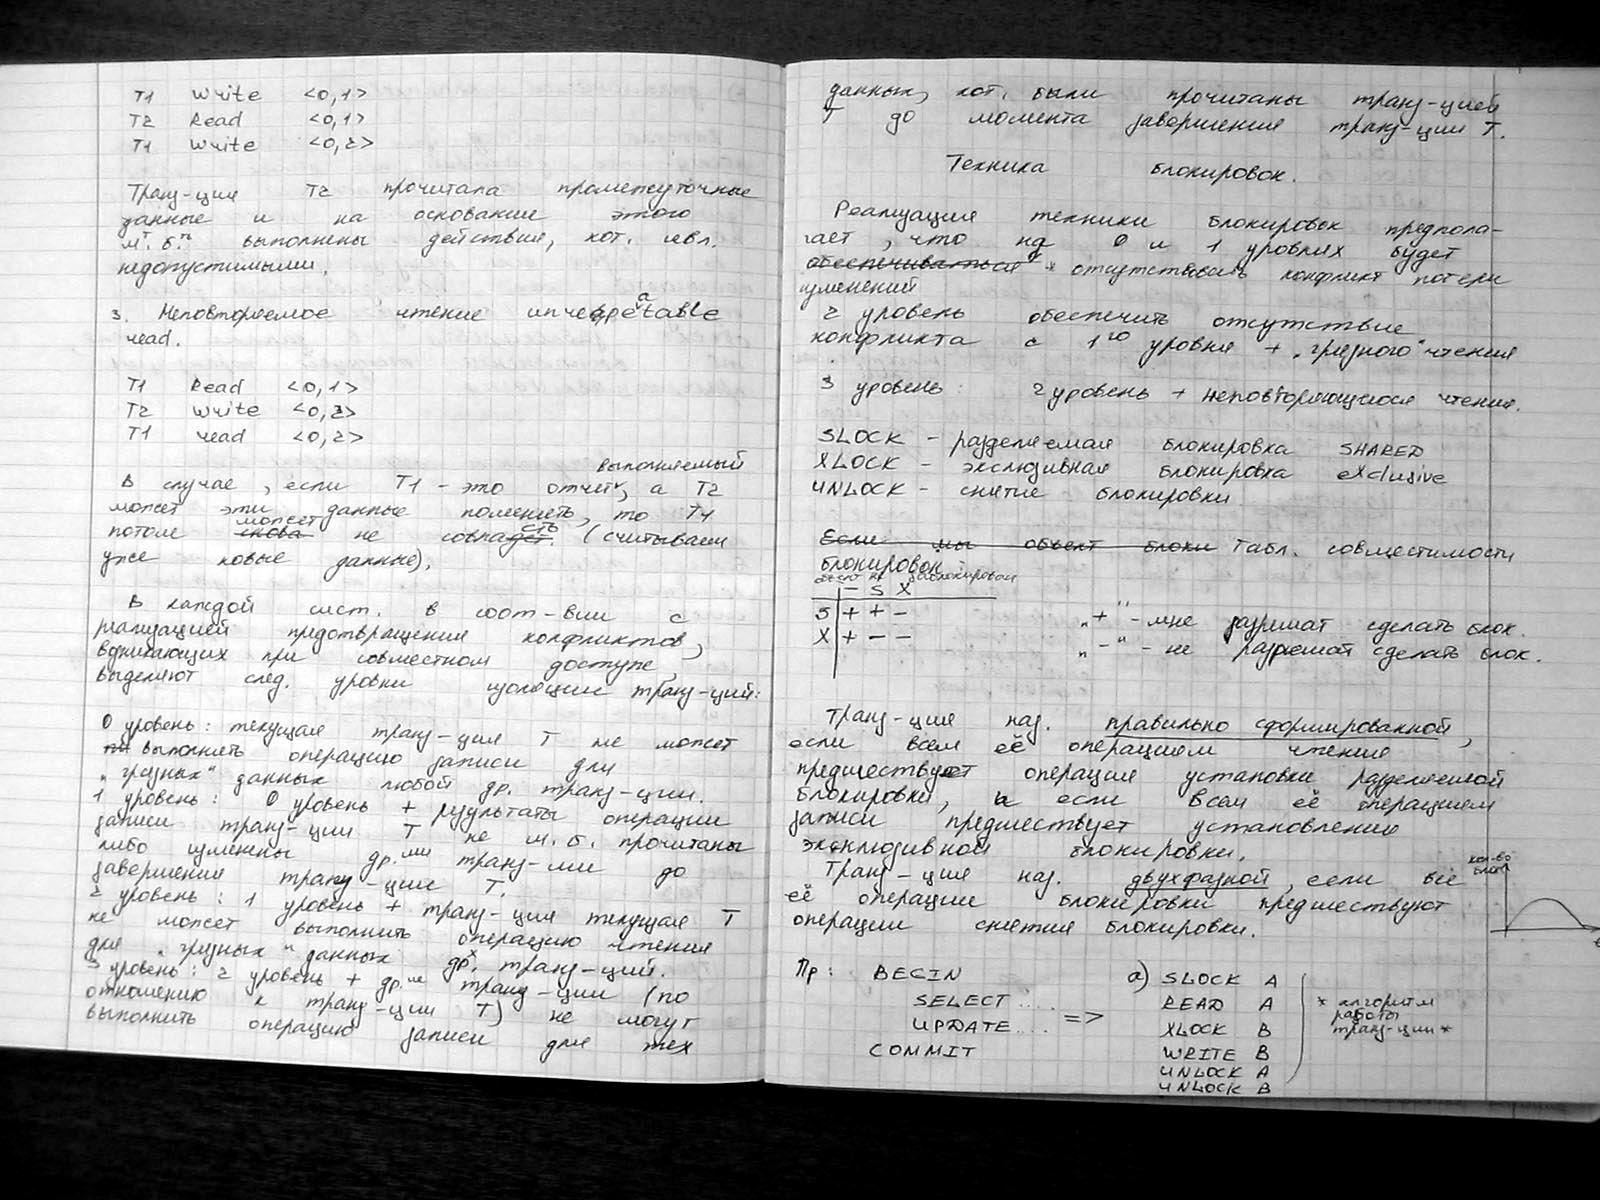 T1 Write <0,1>
T2 Read <0,1>
T1 Write <0,2>
Транз-ция T2 прочитала промежуточные
данные и на основание этого
м. б. выполнены действия, кот. явл.
недопустимыми.
3. Неповторяемое чтение
read.
T1 Read <0,1>
T2 Write <0,2>
T1 read <0,2>
выполняемый
В случае, если T1 - это отчет, а T2
может эти данные поменять, то T1
может
потом снова не совпасть. (считываем
уже новые данные).
В каждой сист. в соот-вии с
реализацией предотвращения конфликтов,
возникающих при совместном доступе
выделяют след. уровни изоляции транз-ций:
0 уровень: текущая транз-ция T не может
выполнить операцию записи для
„грязных“ данных любой др. транз-ции.
1 уровень: 0 уровень + результаты операции
записи транз-ции T не м. б. прочитаны
либо изменены др.ми транз-ми до
завершения транз-ции T.
2 уровень: 1 уровень + транз-ция текущая T
не может выполнить операцию чтения
для „грязных“ данных др.х транз-ций.
3 уровень: 2 уровень + др.ие транз-ции (по
отношению к транз-ции T) не могут
выполнить операцию записи для тех
данных, кот. были прочитаны транз-цией
T до момента завершения транз-ции T.
Техника блокировок.
Реализация техники блокировок предпола-
гает, что на 0 и 1 уровнях будет
обеспечиваться отсутствовать конфликт потери
изменений
2 уровень обеспечить отсутствие
конфликта с 1го уровня + „грязного“ чтения
3 уровень: 2 уровень + неповторяющегося чтения.
SLOCK - разделяемая блокировка SHARED
XLOCK - эксклюзивная блокировка eXclusive
UNLOCK - снятие блокировки
Если мы объект блоки Табл. совместимости
блокировок
- S X
S + + -
X + - -
„+“ - мне разрешат сделать блок.
„-“ - не разрешат сделать блок.
Транз-ция наз. правильно сформированной,
если всем её операциям чтения
предшествует операция установки разделяемой
блокировки, и если всем её операциям
записи предшествует установление
эксклюзивной блокировки.
Транз-ция наз. двухфазной, если все
её операции блокировки предшествуют
операции снятия блокировки.
кол-во
блок
t
Пр: BEGIN
SELECT ....
UPDATE .... =>
COMMIT
а) SLOCK A
READ A
XLOCK B
WRITE B
UNLOCK A
UNLOCK B
* алгоритм
работы
транз-ции *